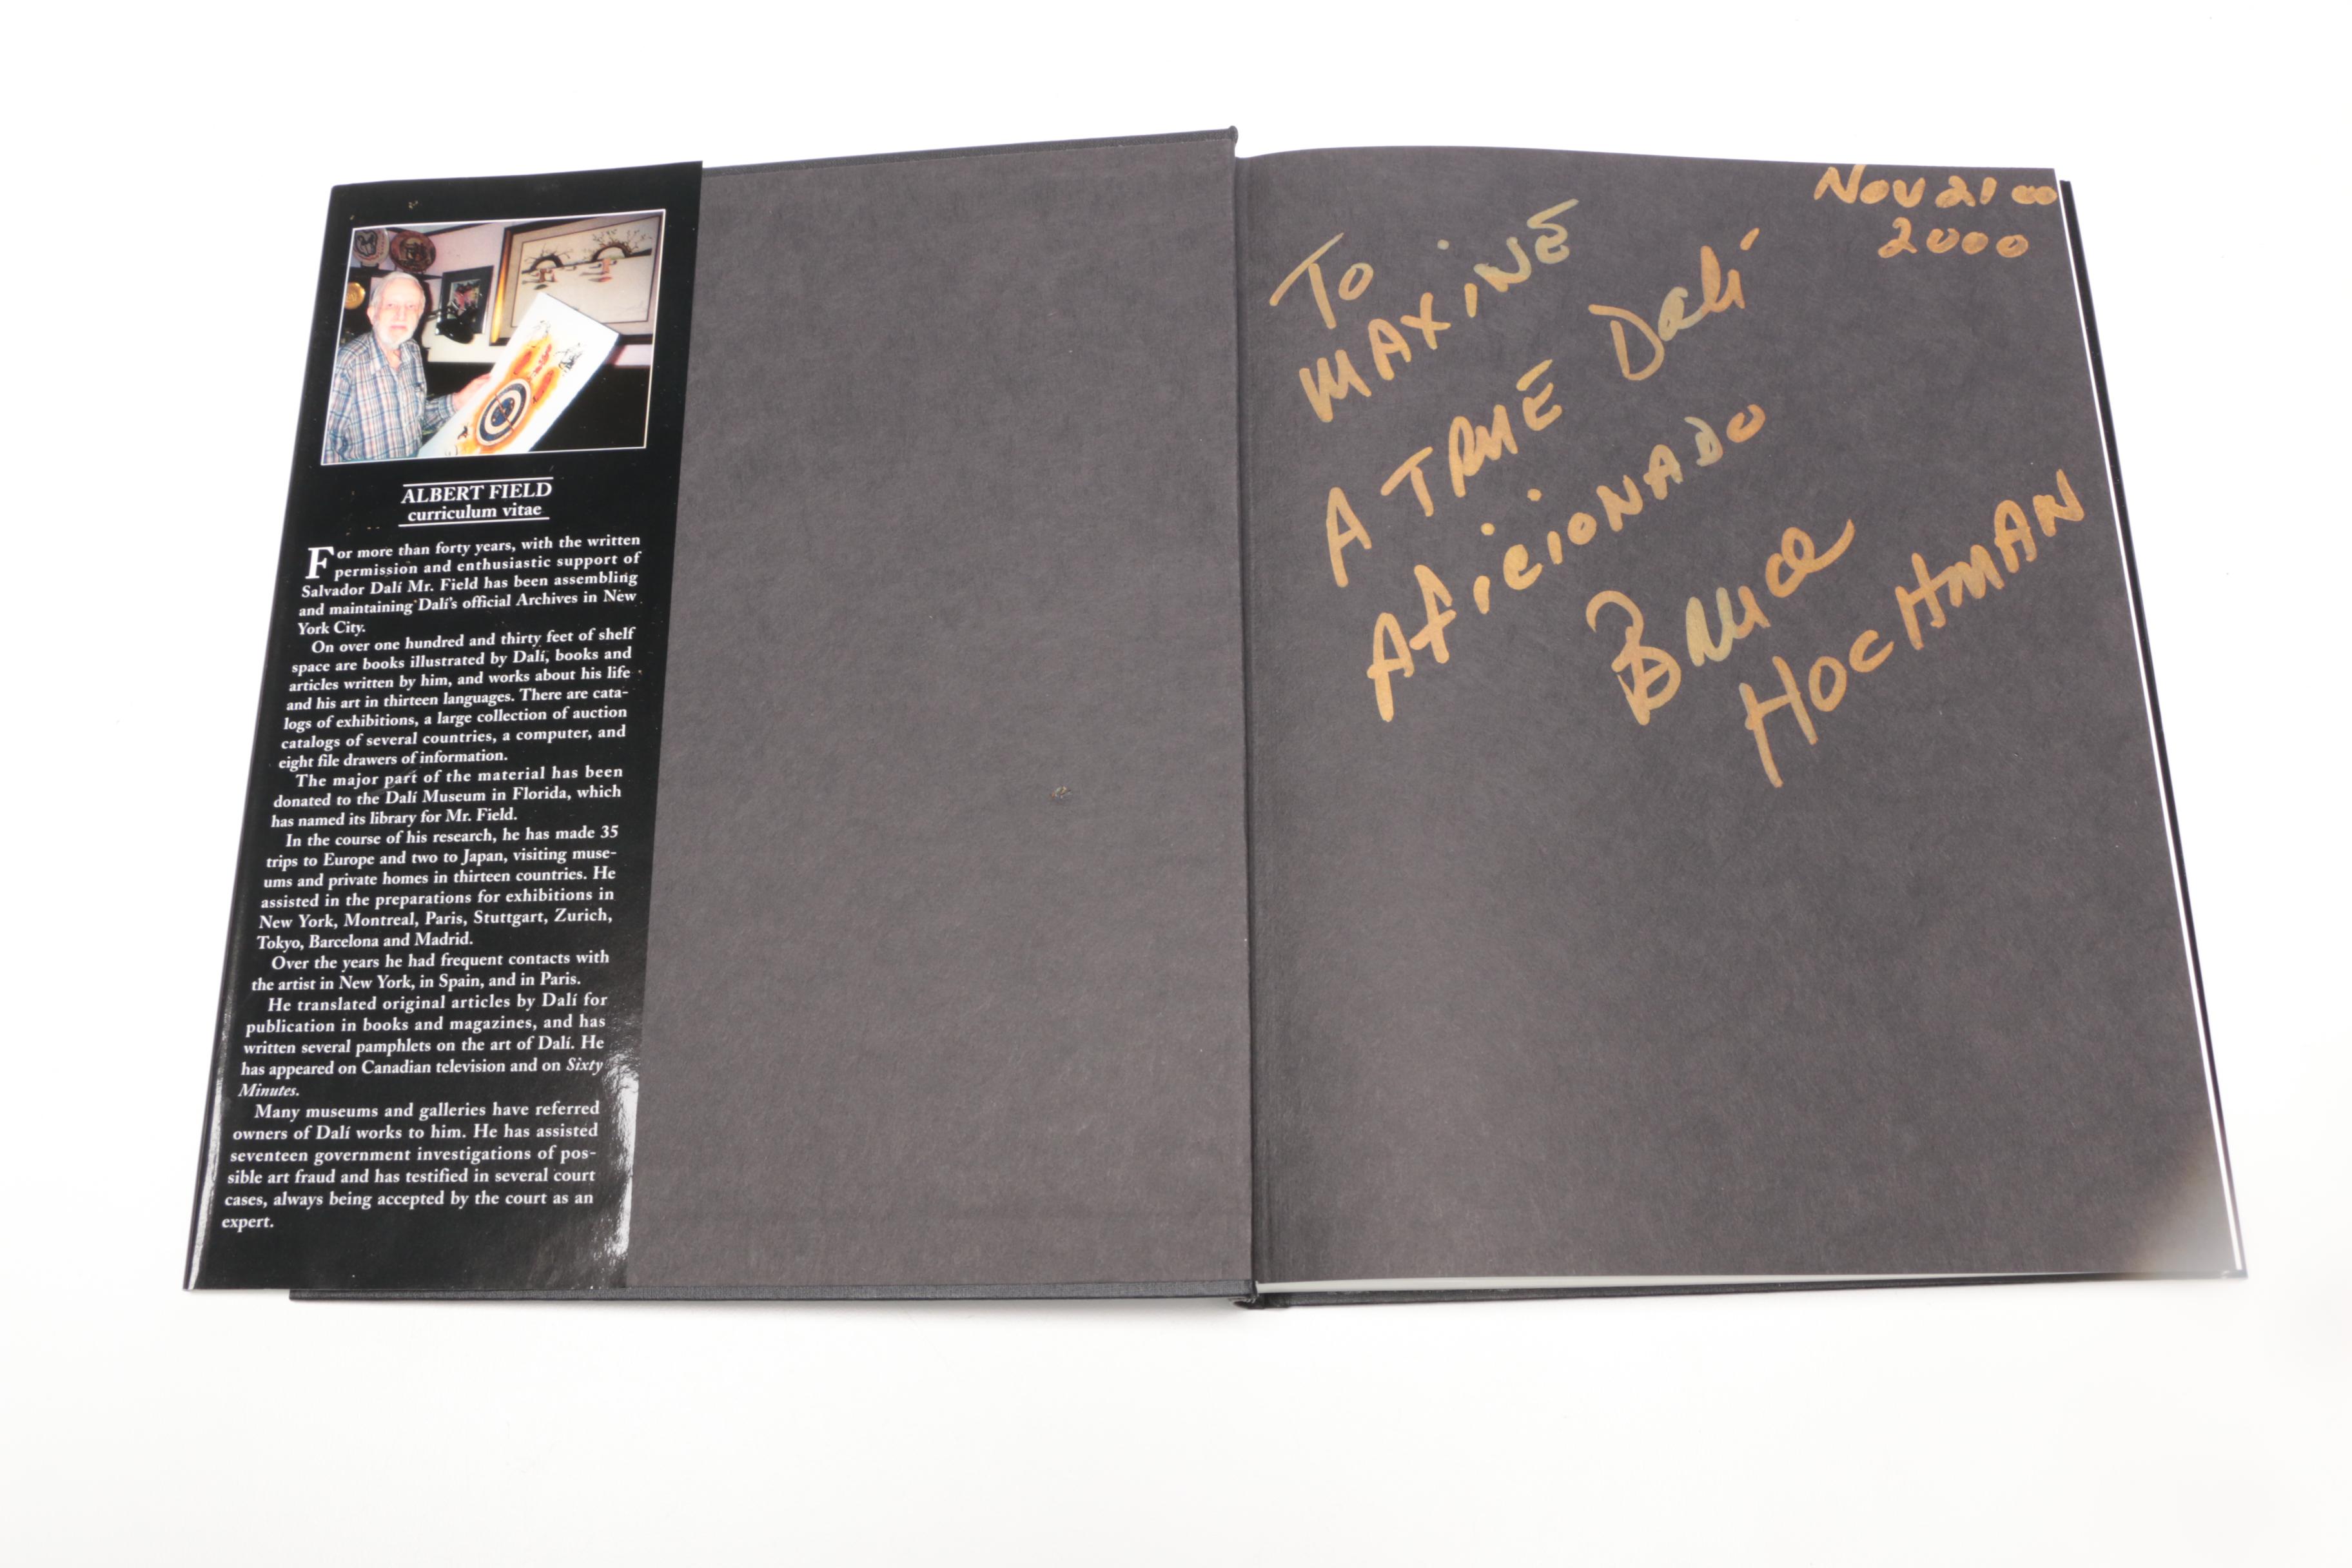 ALBERT FIELD
curriculum vitae
For more than forty years, with the written
permission and enthusiastic support of
Salvador Dalí Mr. Field has been assembling
and maintaining Dalí's official Archives in New
York City.
On over one hundred and thirty feet of shelf
space are books illustrated by Dalí, books and
articles written by him, and works about his life
and his art in thirteen languages. There are cata-
logs of exhibitions, a large collection of auction
catalogs of several countries, a computer, and
eight file drawers of information.
The major part of the material has been
donated to the Dalí Museum in Florida, which
has named its library for Mr. Field.
In the course of his research, he has made 35
trips to Europe and two to Japan, visiting muse-
ums and private homes in thirteen countries. He
assisted in the preparations for exhibitions in
New York, Montreal, Paris, Stuttgart, Zurich,
Tokyo, Barcelona and Madrid.
Over the years he had frequent contacts with
the artist in New York, in Spain, and in Paris.
He translated original articles by Dalí for
publication in books and magazines, and has
written several pamphlets on the art of Dalí. He
has appeared on Canadian television and on Sixty
Minutes.
Many museums and galleries have referred
owners of Dalí works to him. He has assisted
seventeen government investigations of pos-
sible art fraud and has testified in several court
cases, always being accepted by the court as an
expert.
Nov 21 00
2000
To
MAXiNE
A TRUE Dalí
AficioNADo
Bruce
HOCHMAN